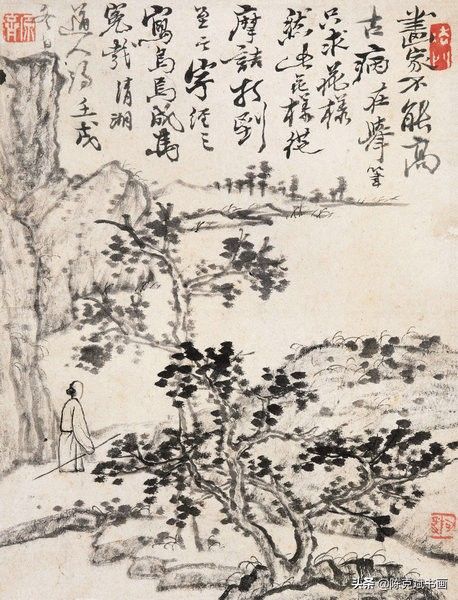 畫家不能高
古病在舉筆
只求花樣
然此花樣從
摩詰打到
至今字經三
寫烏焉成馬
冤哉清湘
道人濟壬戌
头条 @陈克斌书画